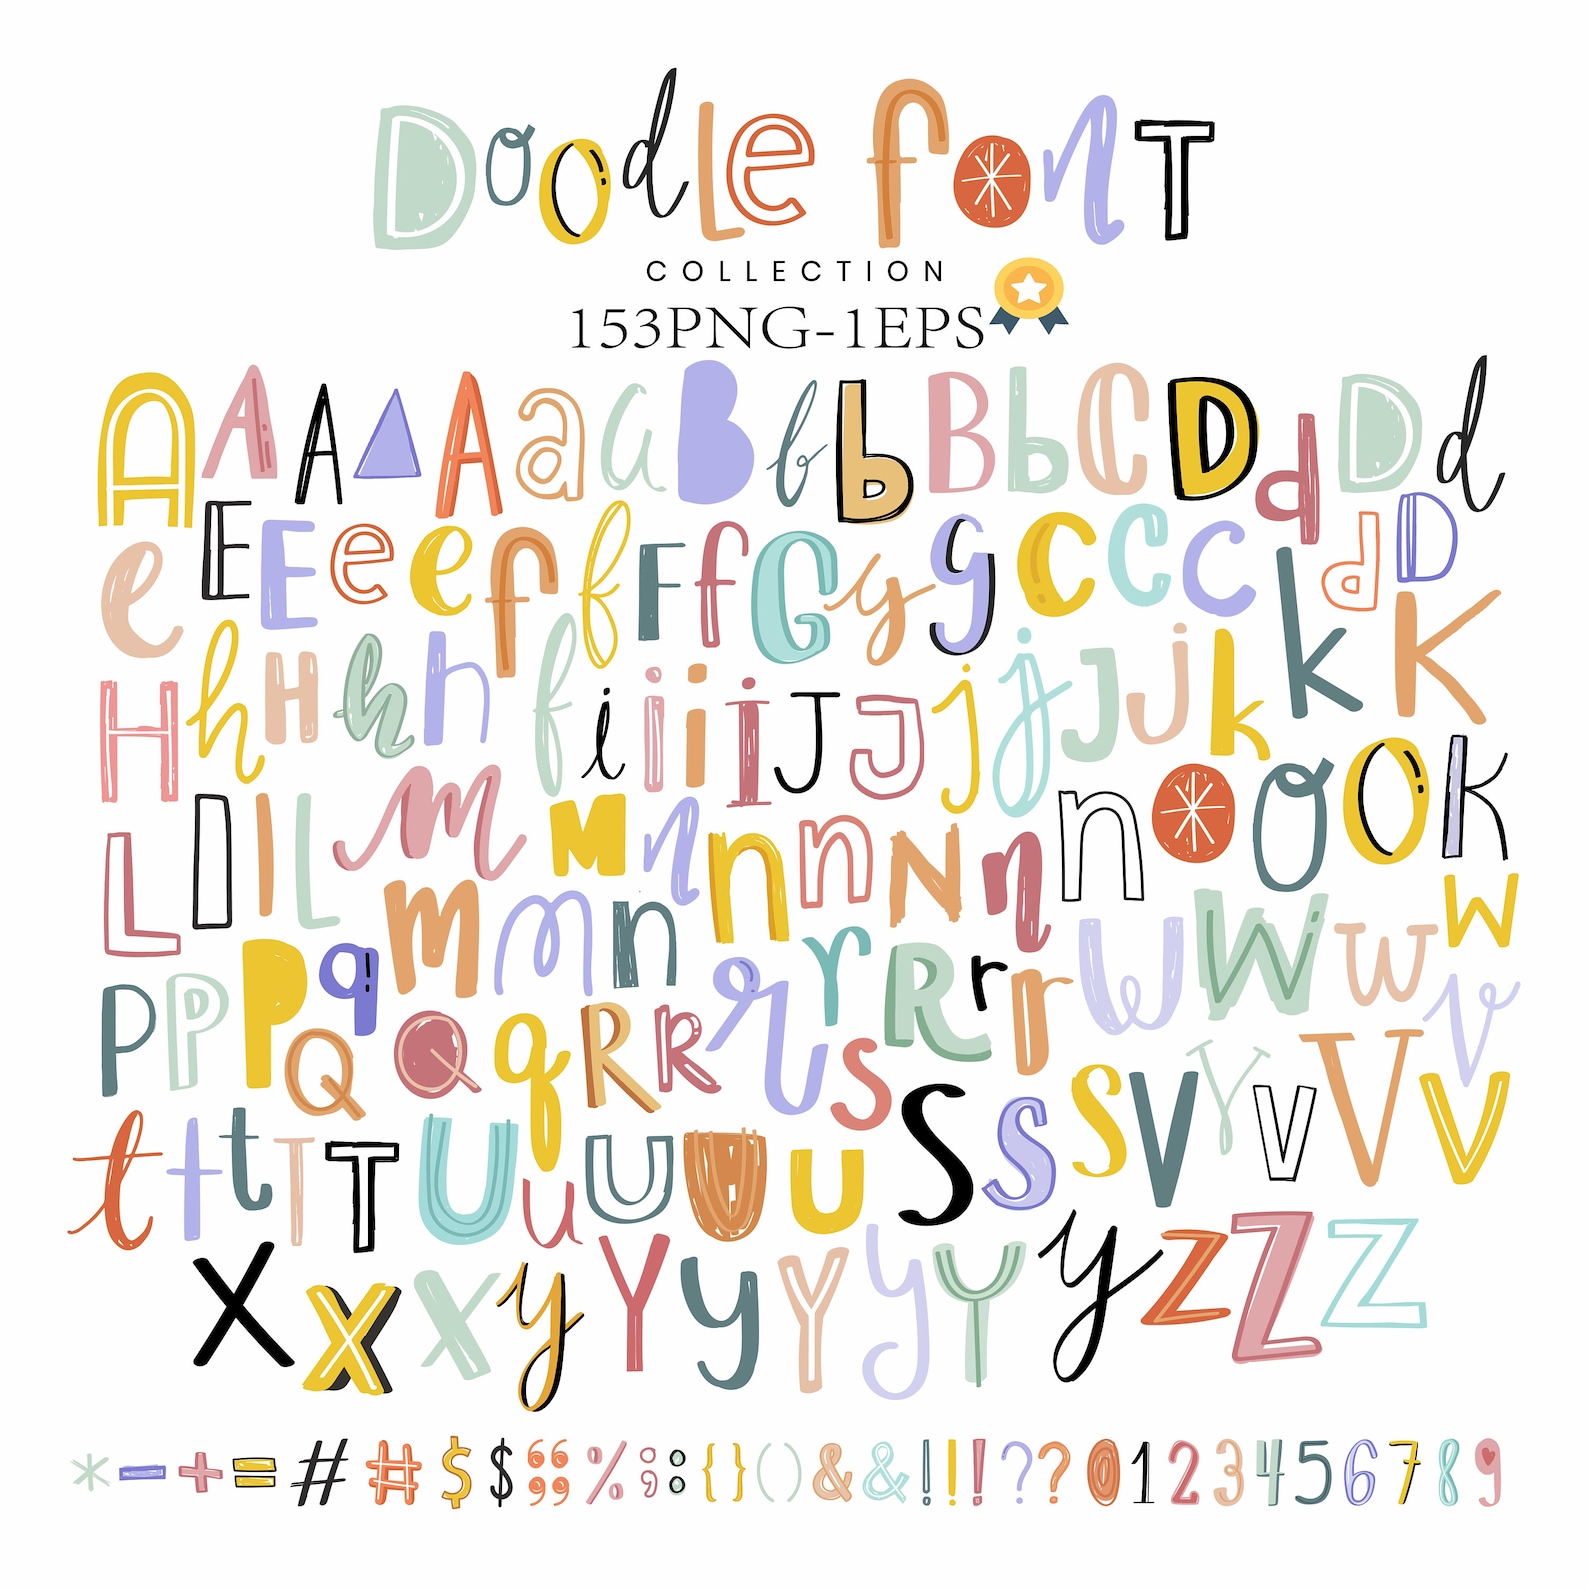 Doodle fonT
COLLECTION
153PNG-1EPS
A A A A A a a B b b B b C D d D d
e E E e e f f F f G g g C C C d D
H h H h h f i i i i J J j j J j k k K
L l l l m M n n n n N n n O O O K
P P P q m m n r r R r r W W w w v
Q Q q R R s S s s V Y V V V
t t t T T U u U U u
X x X y Y y Y y Y y z Z Z
* - + = # # $ $ “ ” % ; : { } ( ) & & ! ! ! ? ? 0 1 2 3 4 5 6 7 8 9